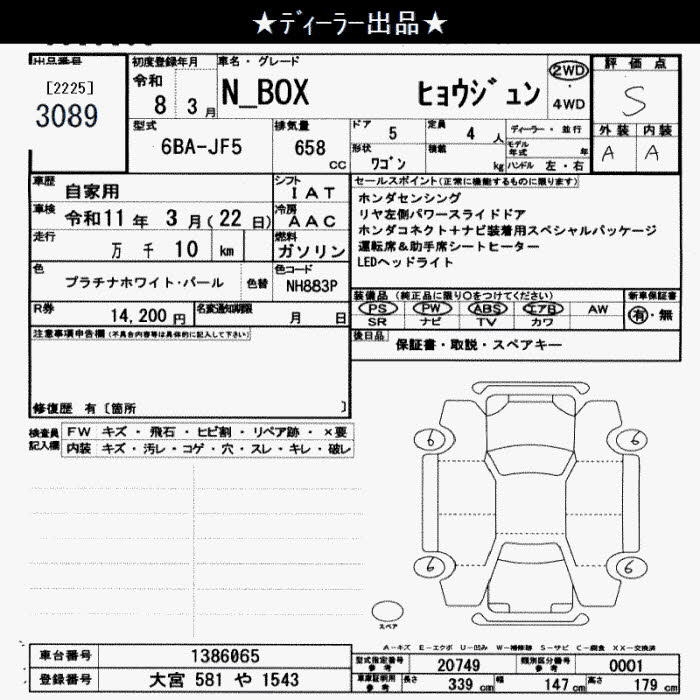 ★ディーラー出品★
出品番号
[2225]
3089
初度登録年月
令和 8 3月
車名・グレード
N_BOX ヒョウジュン
2WD
・
4WD
評価点
S
外装 内装
A A
型式
6BA-JF5
排気量
658 cc
ドア 5
定員 4 人
ディーラー・並行
モデル年式 年
形状 ワゴン
積載 kg
ハンドル 左・右
車歴 自家用
シフト IAT
車検 令和11年 3月(22日)
冷房 AAC
走行 万 千 10 km
燃料 ガソリン
色 プラチナホワイト・パール 色替
色コード NH883P
R券 14,200円
名変通知期限 月 日
セールスポイント(正常に機能するものに限ります)
ホンダセンシング
リヤ左側パワースライドドア
ホンダコネクト+ナビ装着用スペシャルパッケージ
運転席&助手席シートヒーター
LEDヘッドライト
装備品(純正品に限り○をつけてください)
新車保証書
PS PW ABS エアB AW
有・無
SR ナビ TV カワ
後日品 保証書・取説・スペアキー
注意事項申告欄(不具合内容等は具体的に記入して下さい)
修復歴 有〔箇所 〕
検査員記入欄
FW キズ・飛石・ヒビ割・リペア跡・×要
内装 キズ・汚レ・コゲ・穴・スレ・キレ・破レ
6 6
6 6
スペア
A-キズ E-エクボ U-凹み W-補修跡 S-サビ C-腐食 XX-交換済
車台番号 1386065
登録番号 大宮 581 や 1543
型式指定番号参考 20749
類別区分番号参考 0001
車庫証明用参考 長さ 339 cm 幅 147 cm 高さ 179 cm